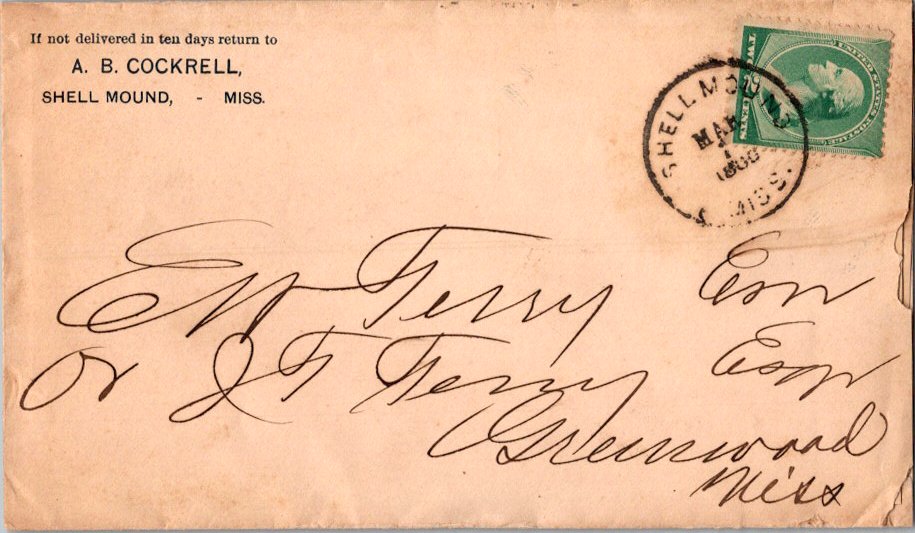 If not delivered in ten days return to
A. B. COCKRELL,
SHELL MOUND, - MISS.
SHELL MOUND
MAR
1
MISS.
UNITED STATES POSTAGE
Terry Esq
or J T Terry Esqr
Greenwood
Miss